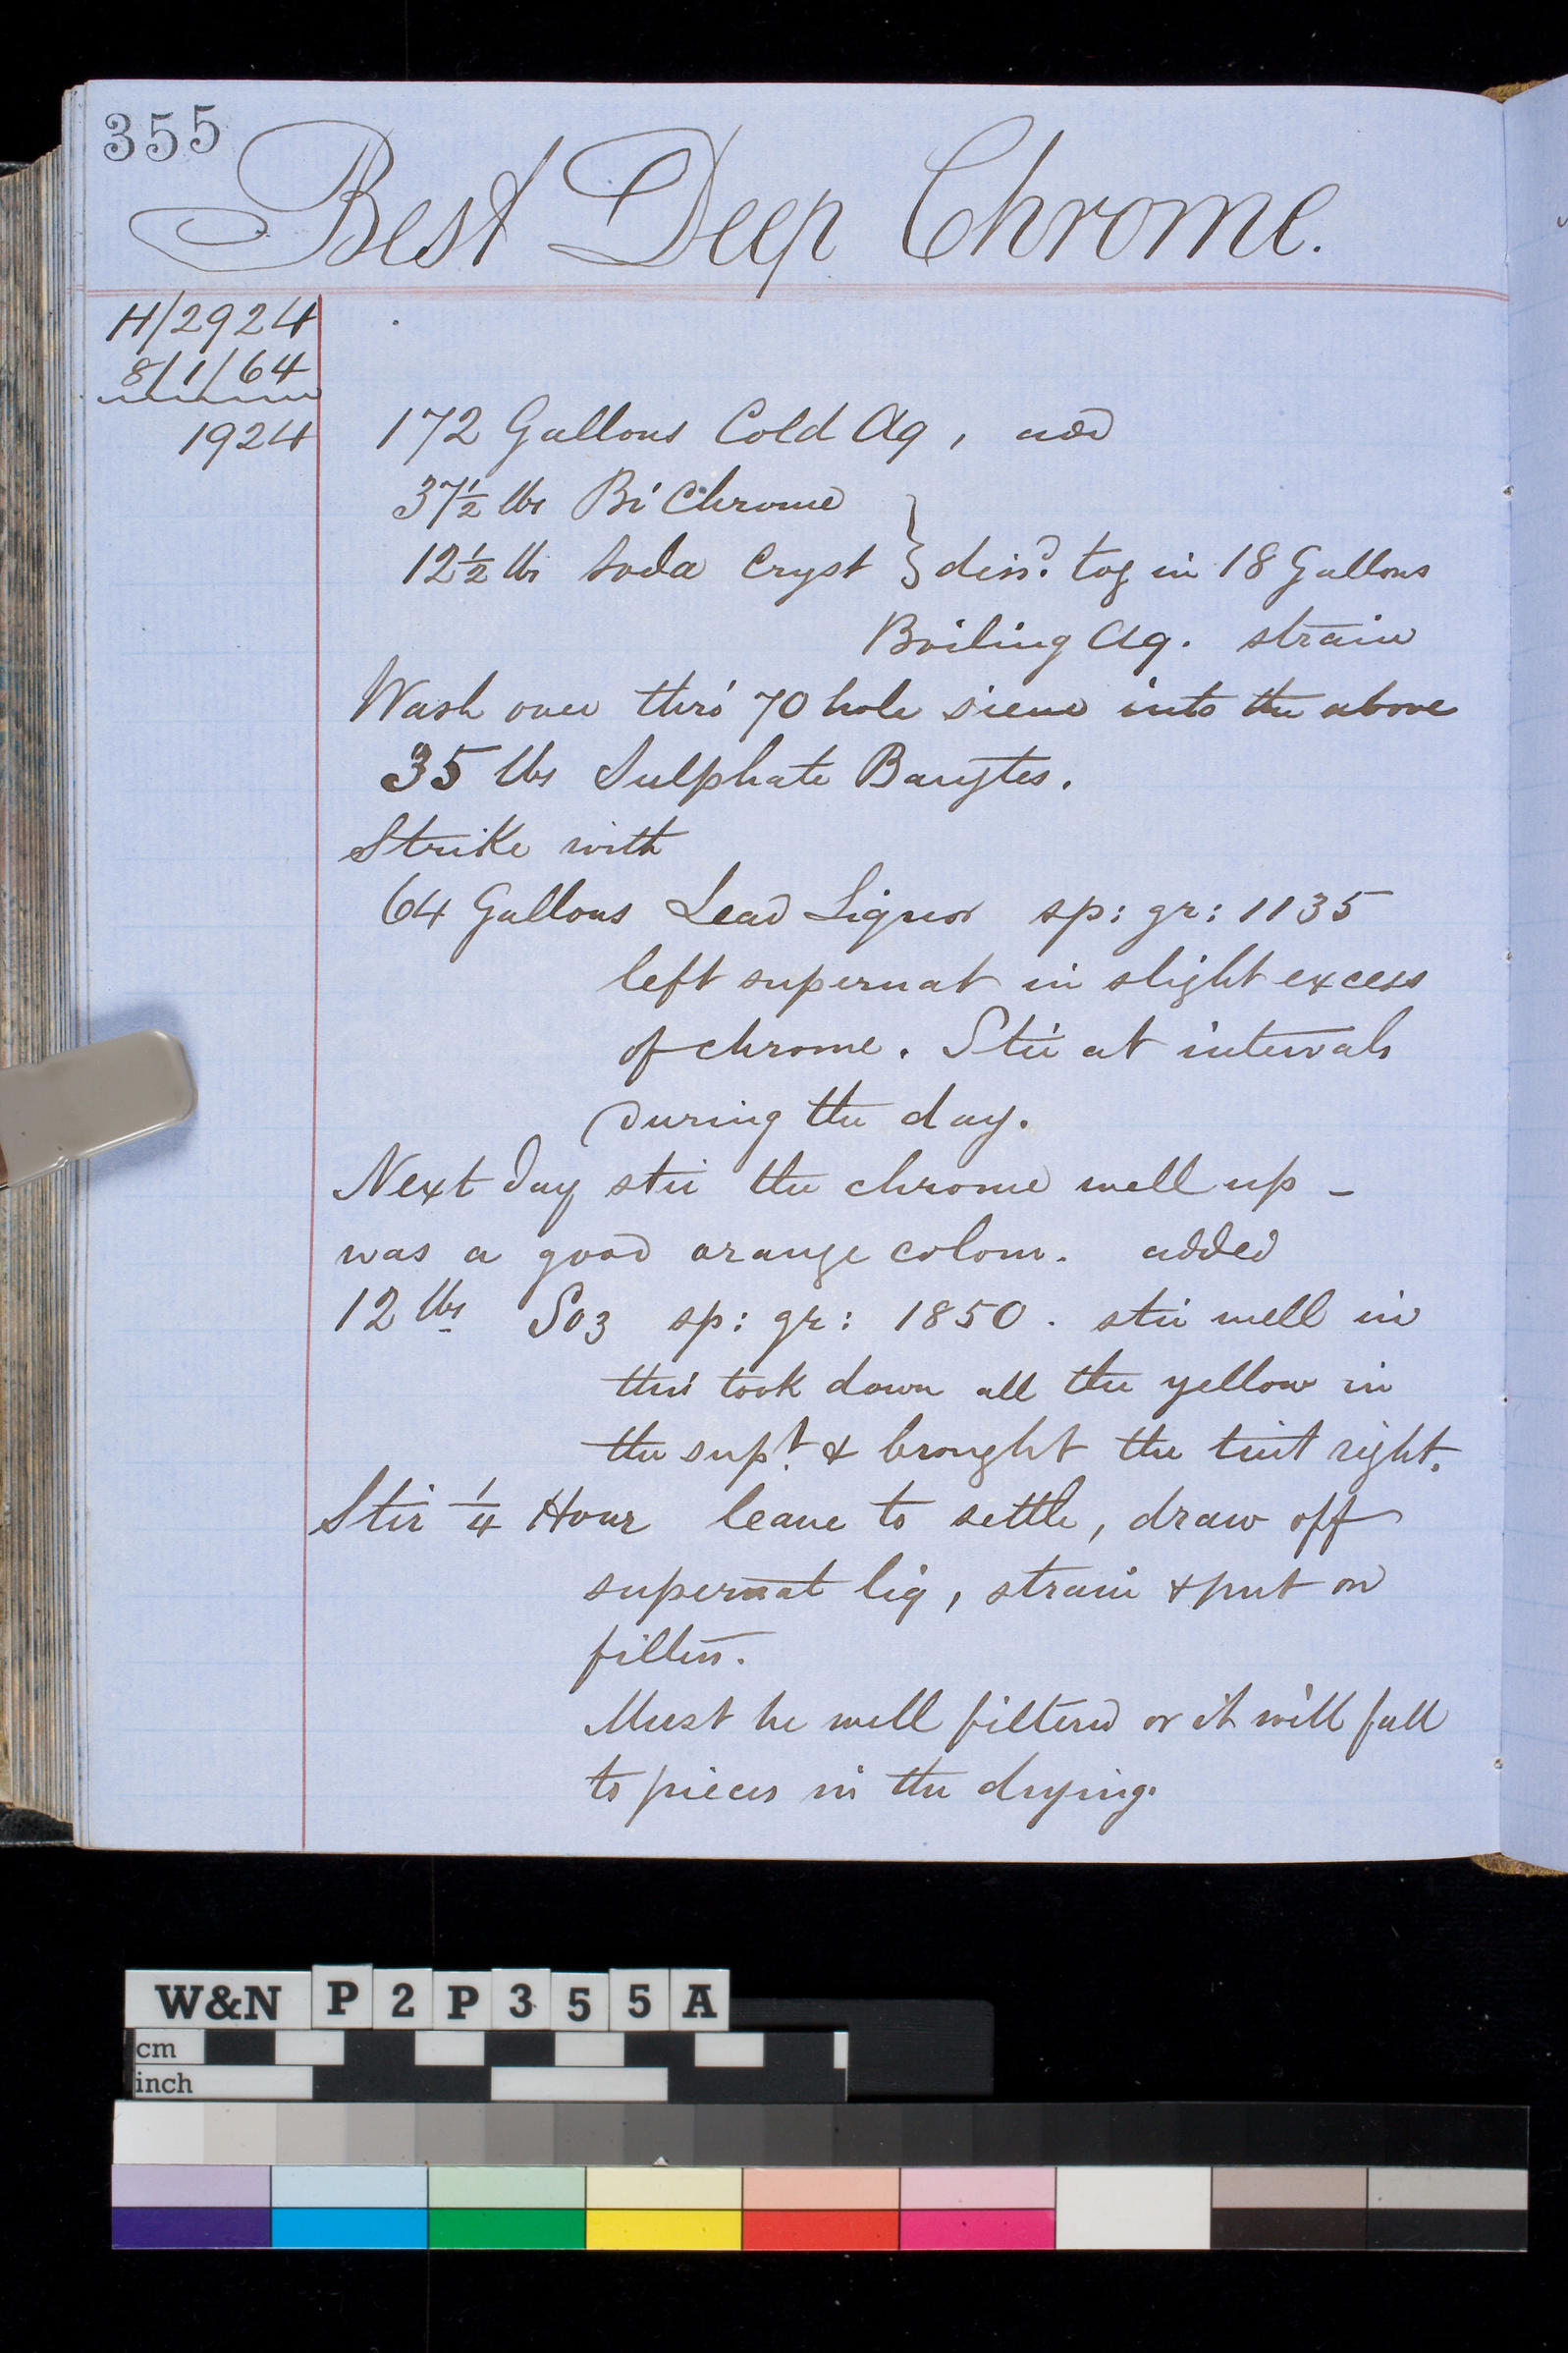 355
Best Deep Chrome.
H/2924
8/1/64
1924
172 Gallons Cold Aq, add
37½ lbs Bi Chrome
12½ lbs Soda Cryst } diss.d tog in 18 Gallons
Boiling Aq. strain
Wash over thro' 70 hole sieve into the above
35 lbs Sulphate Barytes.
Strike with
64 Gallons Lead Liquor sp: gr: 1135
left supernat in slight excess
of chrome. Stir at intervals
during the day.
Next day stir the chrome well up -
was a good orange colour. added
12 lbs So3 sp: gr: 1850. stir well in
this took down all the yellow in
the sup.t & brought the tint right.
Stir ¼ Hour leave to settle, draw off
supernat liq, strain & put on
filters.
Must be well filtered or it will fall
to pieces in the drying.
W&N P2P355A
cm
inch